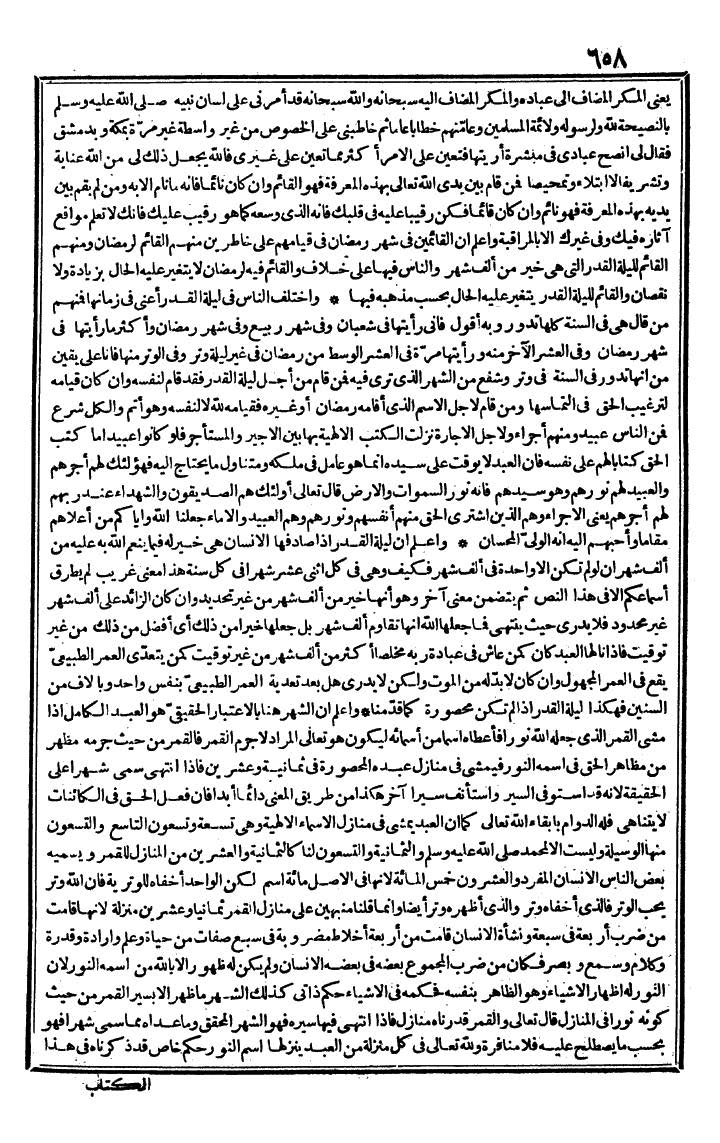 ٦٥٨
يعنى المكر المضاف الى عباده والمكر المضاف اليه سبحانه والله سبحانه قد أمرنى على لسان نبيه صلى الله عليه وسلم
بالنصيحة لله ولرسوله ولائمة المسلمين وعامتهم خطابا عاما ثم خاطبنى على الخصوص من غير واسطة غير مرة بمكة وبدمشق
فقال لى انصح عبادى فى مبشرة أريتها فتعين على الامر أكثر مما تعين على غيرى فالله يجعل ذلك لى من الله عناية
وتشريفا لا ابتلاء وتمحيصا فمن قام بين يدى الله تعالى بهذه المعرفة فهو القائم وان كان نائما فانه ما نام الا به ومن لم يقم بين
يديه بهذه المعرفة فهو نائم وان كان قائما فكن رقيبا عليه فى قلبك فانه الذى وسعه كما هو رقيب عليك فانك لا تعلم مواقع
آثاره فيك وفى غيرك الا بالمراقبة واعلم ان القائمين فى شهر رمضان فى قيامهم على خاطرين منهم القائم لرمضان ومنهم
القائم لليلة القدر التى هى خير من ألف شهر والناس فيها على خلاف والقائم فيه لرمضان لا يتغير عليه الحال بزيادة ولا
نقصان والقائم لليلة القدر يتغير عليه الحال بحسب مذهبه فيها * واختلف الناس فى ليلة القدر أعنى فى زمانها فمنهم
من قال هى فى السنة كلها تدور وبه أقول فانى رأيتها فى شعبان وفى شهر ربيع وفى شهر رمضان وأكثر ما رأيتها فى
شهر رمضان وفى العشر الآخر منه ورأيتها مرة فى العشر الوسط من رمضان فى غير ليلة وتر وفى الوتر منها فانا على يقين
من انها تدور فى السنة فى وتر وشفع من الشهر الذى ترى فيه فمن قام من أجل ليلة القدر فقد قام لنفسه وان كان قيامه
لترغيب الحق فى التماسها ومن قام لاجل الاسم الذى أقامه رمضان أو غيره فقيامه لله لا لنفسه وهو أتم والكل شرع
فمن الناس عبيد ومنهم أجراء ولاجل الاجارة نزلت الكتب الالهية بها بين الاجير والمستأجر فلو كانوا عبيدا ما كتب
الحق كتابا لهم على نفسه فان العبد لا يوقت على سيده انما هو عامل فى ملكه ومتناول ما يحتاج اليه فهؤلئك لهم أجرهم
والعبيد لهم نورهم وهو سيدهم فانه نور السموات والارض قال تعالى أولئك هم الصديقون والشهداء عند ربهم
لهم أجرهم يعنى الاجراء وهم الذين اشترى الحق منهم أنفسهم ونورهم وهم العبيد والاماء جعلنا الله واياكم من أعلاهم
مقاما وأحبهم اليه انه الولىّ المحسان * واعلم ان ليلة القدر اذا صادفها الانسان هى خير له فيما ينعم الله به عليه من
ألف شهر ان لو لم تكن الا واحدة فى ألف شهر فكيف وهى فى كل اثنى عشر شهرا فى كل سنة هذا معنى غريب لم يطرق
أسماعكم الا فى هذا النص ثم يتضمن معنى آخر وهو أنها خير من ألف شهر من غير تحديد وان كان الزائد على ألف شهر
غير محدود فلا يدرى حيث ينتهى فما جعلها الله انها تقاوم ألف شهر بل جعلها خيرا من ذلك أى أفضل من ذلك من غير
توقيت فاذا نالها العبد كان كمن عاش فى عبادة ربه مخلصا أكثر من ألف شهر من غير توقيت كمن يتعدّى العمر الطبيعىّ
يقع فى العمر المجهول وان كان لا بدّ له من الموت ولكن لا يدرى هل بعد تعدية العمر الطبيعىّ بنفس واحد أو بالاف من
السنين فهكذا ليلة القدر اذا لم تكن محصورة كما قدّمنا * واعلم ان الشهر هنا بالاعتبار الحقيقىّ هو العبد الكامل اذا
مشى القمر الذى جعله الله نورا فأعطاه اسما من أسمائه ليكون هو تعالى المراد لا جرم القمر فالقمر من حيث جرمه مظهر
من مظاهر الحق فى اسمه النور فيمشى فى منازل عبده المحصورة فى ثمانية وعشرين فاذا انتهى سمى شهرا على
الحقيقة لانه قد استوفى السير واستأنف سيرا آخر هكذا من طريق المعنى دائما أبدا فان فعل الحق فى الكائنات
لا يتناهى فله الدوام بابقاء الله تعالى كما ان العبد يمشى فى منازل الاسماء الالهية وهى تسعة وتسعون التاسع والتسعون
منها الوسيلة وليست الا لمحمد صلى الله عليه وسلم والثمانية والتسعون لنا كالثمانية والعشرين من المنازل للقمر ويسميه
بعض الناس الانسان المفرد والعشرون خمس المائة لانها فى الاصل مائة اسم لكن الواحد أخفاه للوترية فان الله وتر
يحب الوتر فالذى أخفاه وتر والذى أظهره وتر أيضا وانما قلنا منبهين على منازل القمر ثمانيا وعشرين منزلة لانها قامت
من ضرب أربعة فى سبعة ونشأة الانسان قامت من أربعة أخلاط مضروبة فى سبع صفات من حياة وعلم وارادة وقدرة
وكلام وسمع وبصر فكان من ضرب المجموع بعضه فى بعضه الانسان ولم يكن له ظهور الا بالله من اسمه النور لان
النور له اظهار الاشياء وهو الظاهر بنفسه فحكمه فى الاشياء حكم ذاتى كذلك الشهر ما ظهر الا بسير القمر من حيث
كونه نورا فى المنازل قال تعالى والقمر قدرناه منازل فاذا انتهى فيها سيره فهو الشهر المحقق وما عداه مما سمى شهرا فهو
بحسب ما يصطلح عليه فلا منافرة ولله تعالى فى كل منزلة من العبد ينزلها اسم النور حكم خاص قد ذكرناه فى هذا
الكتاب